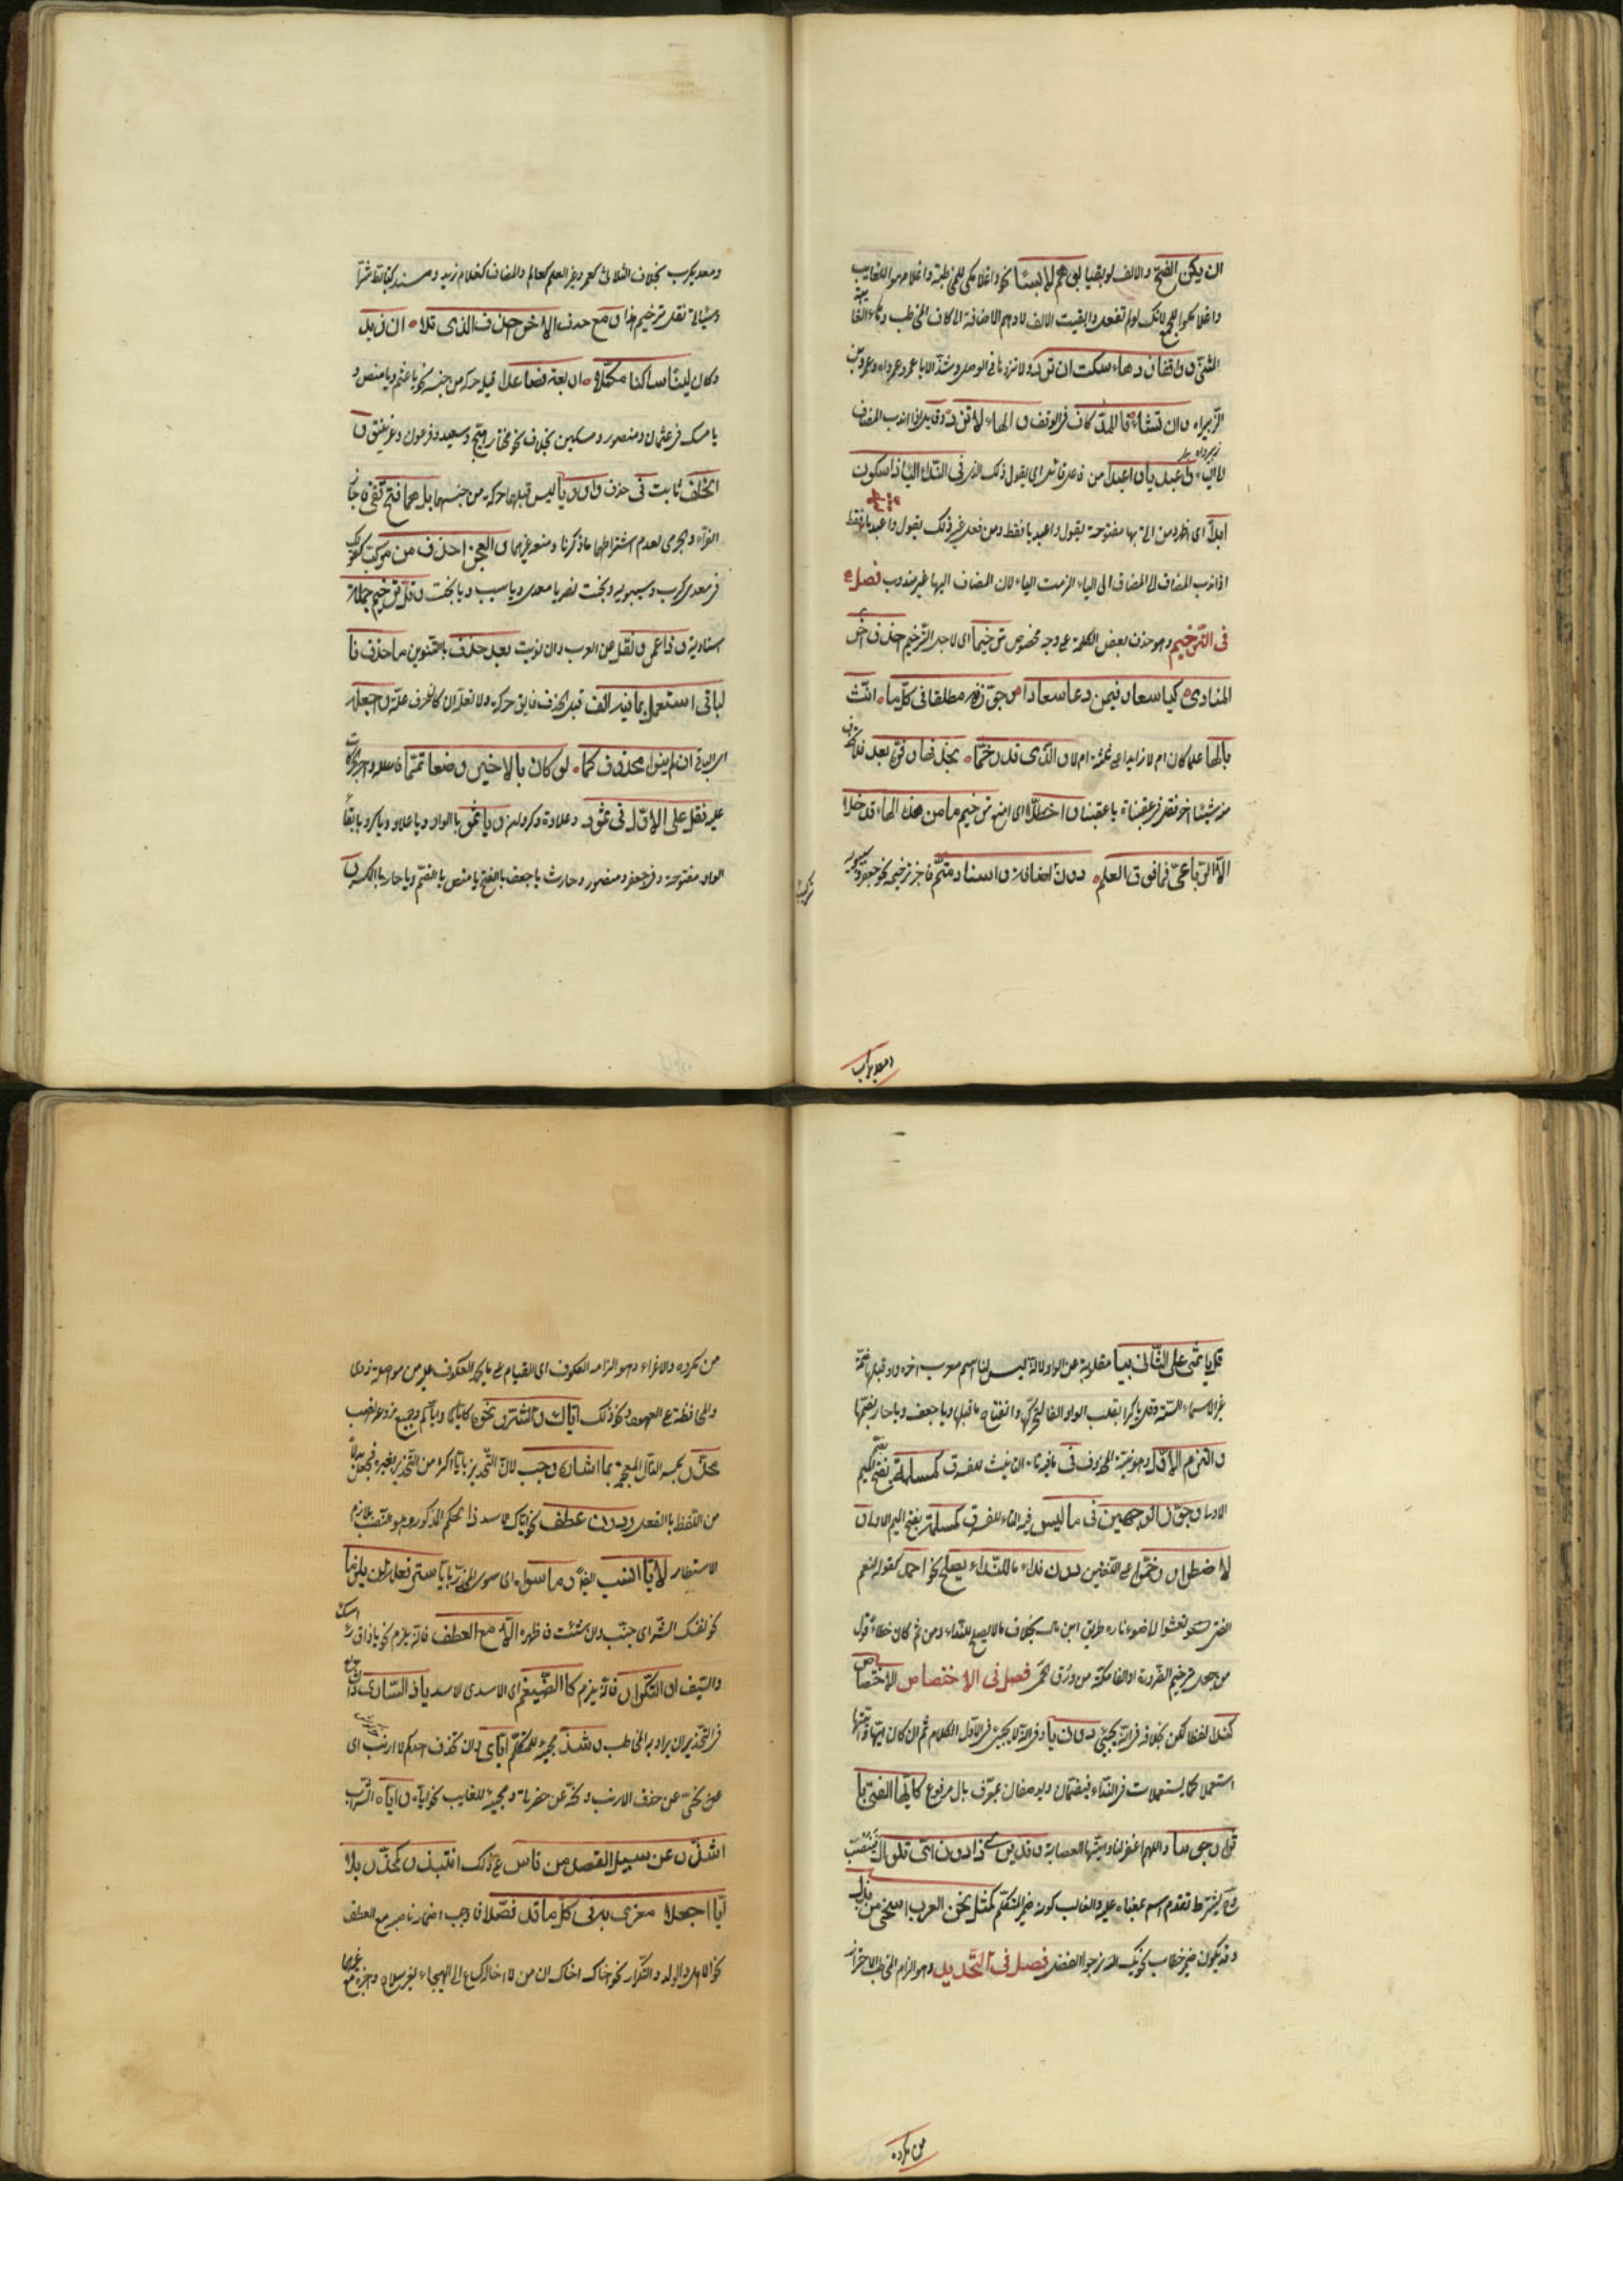 ان يكن الفتح والالف لو بقيا بوهم لابسا نحو واغلامكى للمخاطبة واغلامهو للغايب
واغلامكموا للجمع لانك لو لم تفعل وابقيت الالف لاوهم الاضافة الى كاف المخاطب وهاء الغايبة
وواقفا زد هاء سكت ان ترد ولا تزدها فى الوصل وشذ الا يا عمرو عمراه وعمرو بن
الزبيراه وان تشا فالمد كاف فى الوقف والها لا تزد وقايل اذا ندب المضاف
الى الياء واعبديا واعبدا من فى الندا اليا ذا سكون ابدا
اى يقول واعبديا فقط ومن فعل غير ذلك يقول واعبدا فقط
اذا ندب المضاف الى المضاف الى الياء لزمت الياء لان المضاف اليها غير مندوب فصل
فى الترخيم وهو حذف بعض الكلمة على وجه مخصوص ترخيما اى لاجل الترخيم احذف اخر
المنادى كيا سعا فيمن دعا سعادا وجوزنه مطلقا فى كل ما انث
بالها علما كان ام لا زايدا على ثلثة ام لا والذى قد رخما بحذفها وفره بعد فلا تحذف
منه شيئا اخر فقل فى عقبناة يا عقبنا واحظلا اى امنع ترخيم ما من هذه الهاء قد خلا
الا الرباعى فما فوق العلم دون اضافة واسناد متم فاجز ترخيمه نحو جعفر وسيبويه
ومعديكرب
ومعديكرب بخلاف الثلاثى كعمر وغير العلم كعالم والمضاف كغلام زيد ومسند كتأبط شرا
ومع حذف الاخر احذف الذى تلا ان زيد
وكان لينا ساكنا مكملا اربعة فصاعدا قبله حركة من جنسه نحو يا عثم ويا منص و
يا مسك فى عثمان ومنصور ومسكين بخلاف نحو مختار وهبيخ وسعيد وفرعون وغرنيق و
الخلف ثابت فى حذف واو وياء ليس قبلهما حركة من جنسهما بل بهما فتح قفى فاجاز
الفراء والجرمى لعدم اشتراطهما ما ذكرنا ومنعه غيرهما والعجز احذف من مركب كقولك
فى معديكرب وسيبويه وبخت نصر يا معدى ويا سيب ويا بخت وقل ترخيم جملة
اسنادية وذا عمرو نقل عن العرب وان نويت بعد حذف بالتنوين ما حذف فا
لباقى استعمل بما فيه الف قبل الحذف فابق حركته ولا تعله ان كان حرف علة واجعله
اى الباقى ان لم ينو محذوف كما لو كان بالاخير وضعا تمما
فقل على الاول فى ثمود وعلاوة وكروان ويا ثمو بالواو ويا علاو ويا كرو بابقاء
الواو مفتوحة وفى جعفر ومنصور وحارث يا جعف بالفتح يا منص بالضم ويا حار بالكسر و
قل يا ثمى على الثانى بيا مقلوبة عن الواو لانه ليس لنا اسم معرب اخره واو قبلها ضمة
غير الاسماء الستة وقل يا كرا بقلب الواو الفا لتحركها وانفتاح ما قبلها ويا جعف ويا حار بضمهما
والتزم الاول وهو نية المحذوف فى ما فيه تاء التانيث للفرق كمسلمة بضم الميم
الاولى وجوز الوجهين فى ما ليس فيه التاء للفرق كمسلمة بفتح الميم الاولى و
لاضطرار رخموا على اللغتين دون ندا ما للنداء يصلح نحو احمد كقوله لنعم
الفتى تعشو الى ضوء ناره طريف ابن مال بخلاف ما لا يصلح للنداء ومن ثم كان خطاء قول
من جعل من ترخيم الضرورة اوالفا مكة من ورق الحمى فصل فى الاختصاص الاختصاص
كندا لفظا لكن يخالفه فى انه يجيئ دون يا وفى انه لا يجيئ فى الاول الكلام ثم ان كان ايها وايتها
استعملا كما يستعملان فى النداء فيضمان ويوصفان بمعرف بال مرفوع كايها الفتى باثر
ارجونيا واللهم اغفر لنا ايتها العصابة وقد يرى ذا دون اى تلو ال فينصب
وح يشترط تقدم اسم بمعناه عليه والغالب كونه ضمير المتكلم كمثل نحن العرب اسخى من بذل
وقد يكون ضمير خطاب كبك الله نرجوا الفضل فصل فى التحذير وهو الزام المخاطب الاحتراز
من مكروه
من مكروه والاغراء وهو الزامه العكوف اى القيام على ما يحمد العكوف عليه من مواصلة ذوى
والمحافظة على العهود ونحو ذلك اياك والشر ونحوه كاياكما واياكم وجميع فروعه نصب
محذر بكسر الذال المعجمة بما استتاره وجب لان التحذير بايا اكثر من التحذير بغيره فجعل بدلا
من اللفظ بالفعل ودون عطف نحو اياك الاسد ذا الحكم المذكور وهو النصب بلازم
الاستتار لايا انسب ايضا وما سواه اى سوى المحذر بايا ستر فعله لن يلزما
نحو نفسك الشر اى جنب وان شئت فاظهره الا مع العطف فانه يلزم نحو ماز راسك
والسيف او التكرار فانه يلزم كالضيغم الضيغم اى الاسد الاسد يا ذا السارى و
فى التحذير ان يراد به المخاطب وشذ مجيئه للمتكلم اياى وان يحذف احدكم الارنب اى
عن نحنى عن حذف الارنب ونحه عن حضرتى ومجيئه للغايب نحو اياه واياه اشذ
اشذ وعن سبيل القصد من قاس على ذلك انتبذ وكمحذر بلا
ايا اجعلا مغرى به فى كل ما قد فصلا فاوجب اضمار ناصبه مع العطف
نحو الاهل والولد والتكرار نحو اخاك اخاك ان من لا اخا له كساع الى الهيجا بغير سلاح